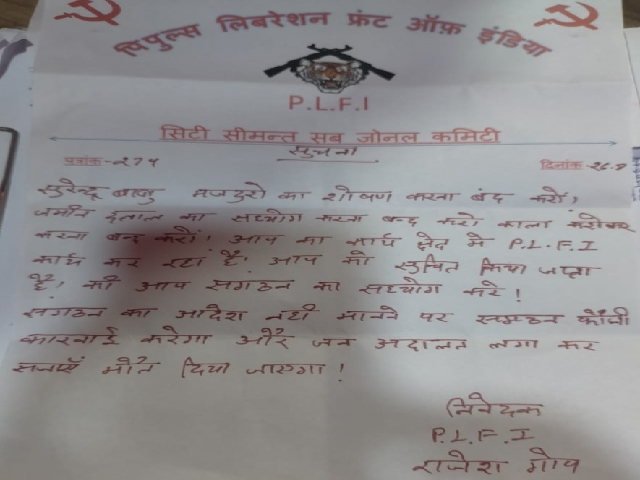 पिपुल्स लिबरेशन फ्रंट ऑफ़ इंडिया
P.L.F.I
सिटी सीमन्त सब जोनल कमिटी
सुचना
पत्रांक-279 दिनांक-26.7
सुरेन्द्र बाबु मजदुरो का शोषण करना बंद करो!
जमीन दलाल का सहयोग करना बन्द करो काला करोबार
करना बन्द करो! आप का कार्य क्षेत्र मे P.L.F.I
कार्य कर रहा है! आप को सुचित किया जाता
है! की आप संगठन का सहयोग करे!
संगठन का आदेश नही मानने पर संगठन फौजी
कारवाई करेगा और जन अदालत लगा कर
मौत दिया जाएगा!
निवेदक
P.L.F.I
राजेश गोप